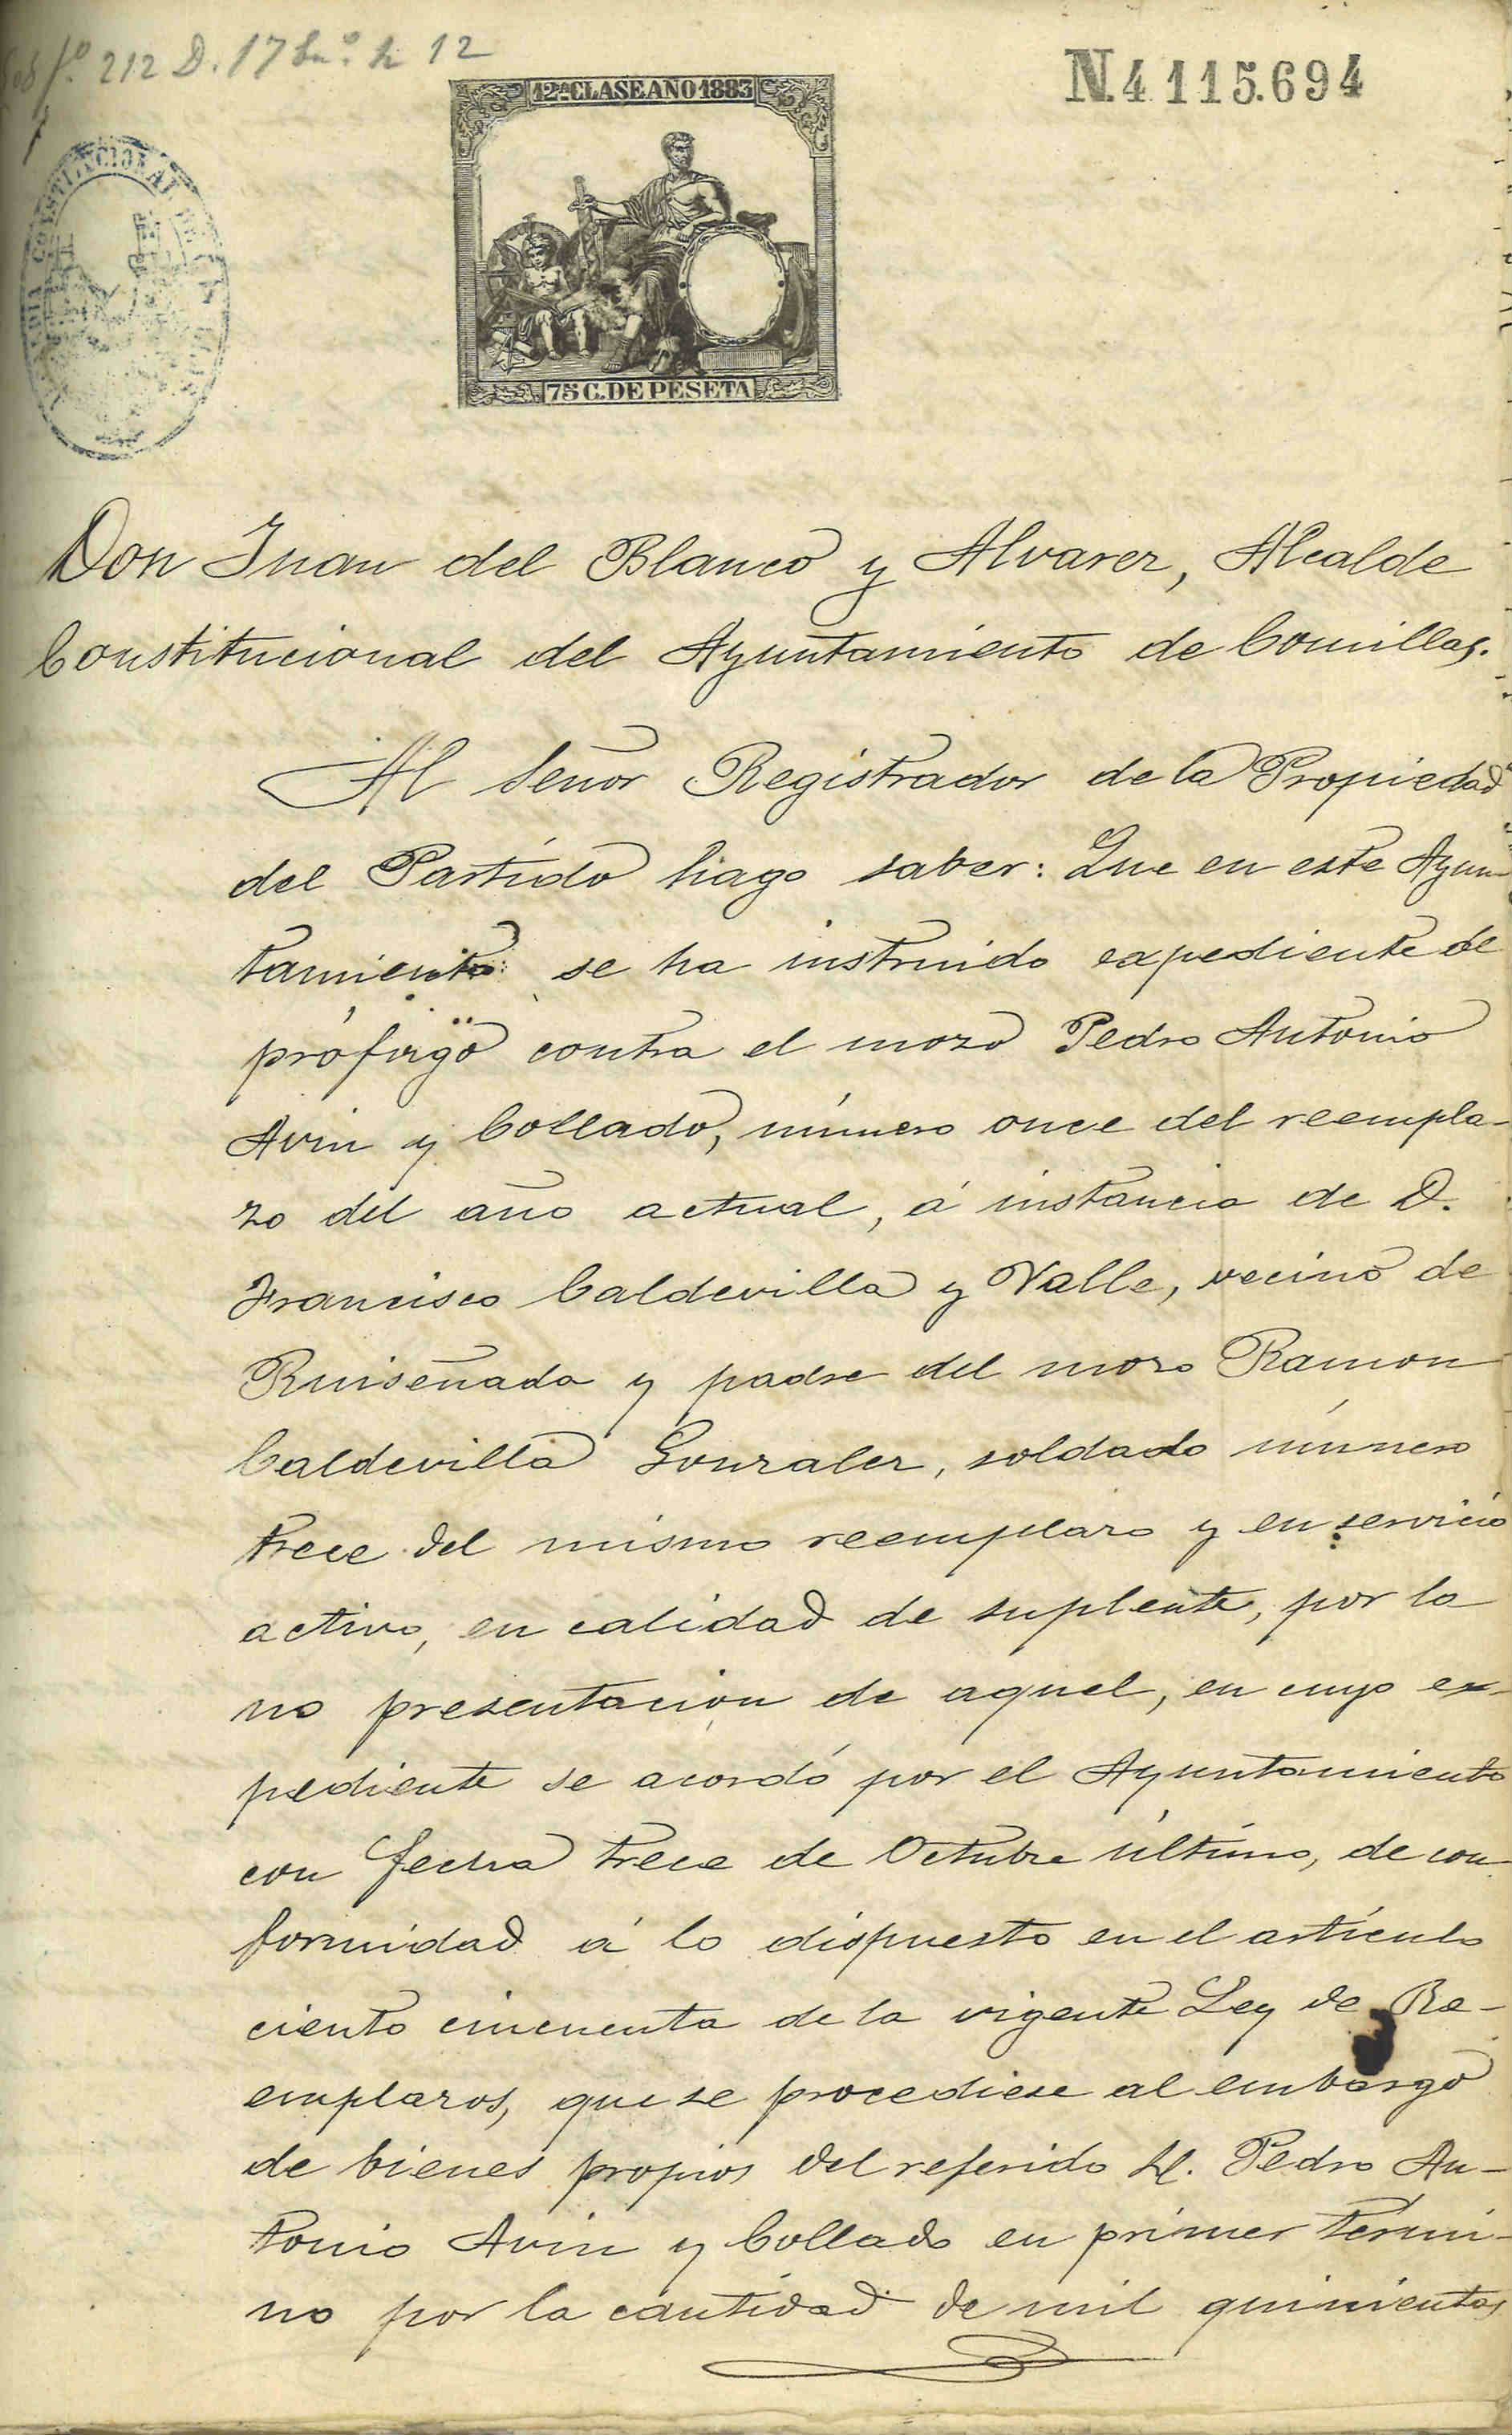 fº 212 D. 17 Enº h 12
N.4.115.694
12ª CLASE AÑO 1883
75 C. DE PESETA
Don Juan del Blanco y Alvarez, Alcalde
Constitucional del Ayuntamiento de Comillas.
Al Señor Registrador de la Propiedad
del Partido hago saber: Que en este Ayun-
tamiento se ha instruido expediente de
prófugo contra el mozo Pedro Antonio
Avin y Collado, número once del reempla-
zo del año actual, á instancia de D.
Francisco Caldevilla y Valle, vecino de
Ruiseñada y padre del mozo Ramon
Caldevilla Gonzalez, soldado número
trece del mismo reemplazo y en servicio
activo, en calidad de suplente, por la
no presentacion de aquel, en cuyo ex-
pediente se acordó por el Ayuntamiento
con fecha trece de Octubre último, de con-
formidad á lo dispuesto en el artículo
ciento cincuenta de la vigente Ley de Re-
emplazos, que se procediese al embargo
de bienes propios del referido Pedro An-
tonio Avin y Collado en primer térmi-
no por la cantidad de mil quinientas